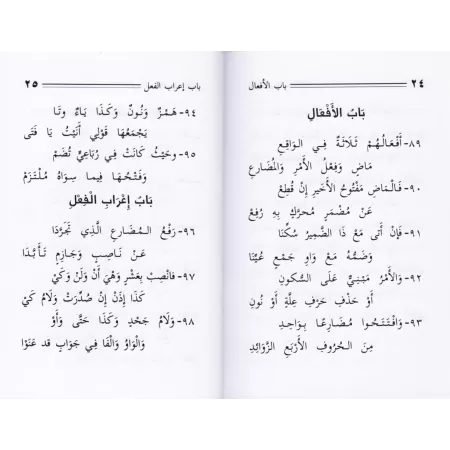 ٢٤ باب الأفعال
بَابُ الأَفْعَالِ
٨٩- أَفْعَالُهُمْ ثَلَاثَةٌ فِي الوَاقِعِ
مَاضٍ وَفِعْلُ الأَمْرِ وَالمُضَارِعِ
٩٠- فَالْمَاضِ مَفْتُوحُ الأَخِيرِ إِنْ قُطِعْ
عَنْ مُضْمَرٍ مُحَرَّكٍ بِهِ رُفِعْ
٩١- فَإِنْ أَتَى مَعْ ذَا الضَّمِيرِ سُكِّنَا
وَضَمُّهُ مَعْ وَاوِ جَمْعٍ عُيِّنَا
٩٢- وَالأَمْرُ مَبْنِيٌّ عَلَى السُّكُونِ
أَوْ حَذْفِ حَرْفِ عِلَّةٍ أَوْ نُونِ
٩٣- وَافْتَتَحُوا مُضَارِعًا بِوَاحِدِ
مِنَ الحُرُوفِ الأَرْبَعِ الزَّوَائِدِ
باب إعراب الفعل ٢٥
٩٤- هَمْزٌ وَنُونٌ وَكَذَا يَاءٌ وَتَا
يَجْمَعُهَا قَوْلِي أَنَيْتُ يَا فَتَى
٩٥- وَحَيْثُ كَانَتْ فِي رُبَاعِيٍّ تُضَمْ
وَفَتْحُهَا فِيمَا سِوَاهُ مُلْتَزَمْ
بَابُ إِعْرَابِ الْفِعْلِ
٩٦- رَفْعُ المُضَارِعِ الَّذِي تَجَرَّدَا
عَنْ نَاصِبٍ وَجَازِمٍ تَأَبَّدَا
٩٧- فَانْصِبْ بِعَشْرٍ وَهْيَ أَنْ وَلَنْ وَكَيْ
كَذَا إِذَنْ إِنْ صُدِّرَتْ وَلَامُ كَيْ
٩٨- وَلَامُ جَحْدٍ وَكَذَا حَتَّى وَأَوْ
وَالْوَاوُ وَالْفَا فِي جَوَابٍ قد عَنَوْا